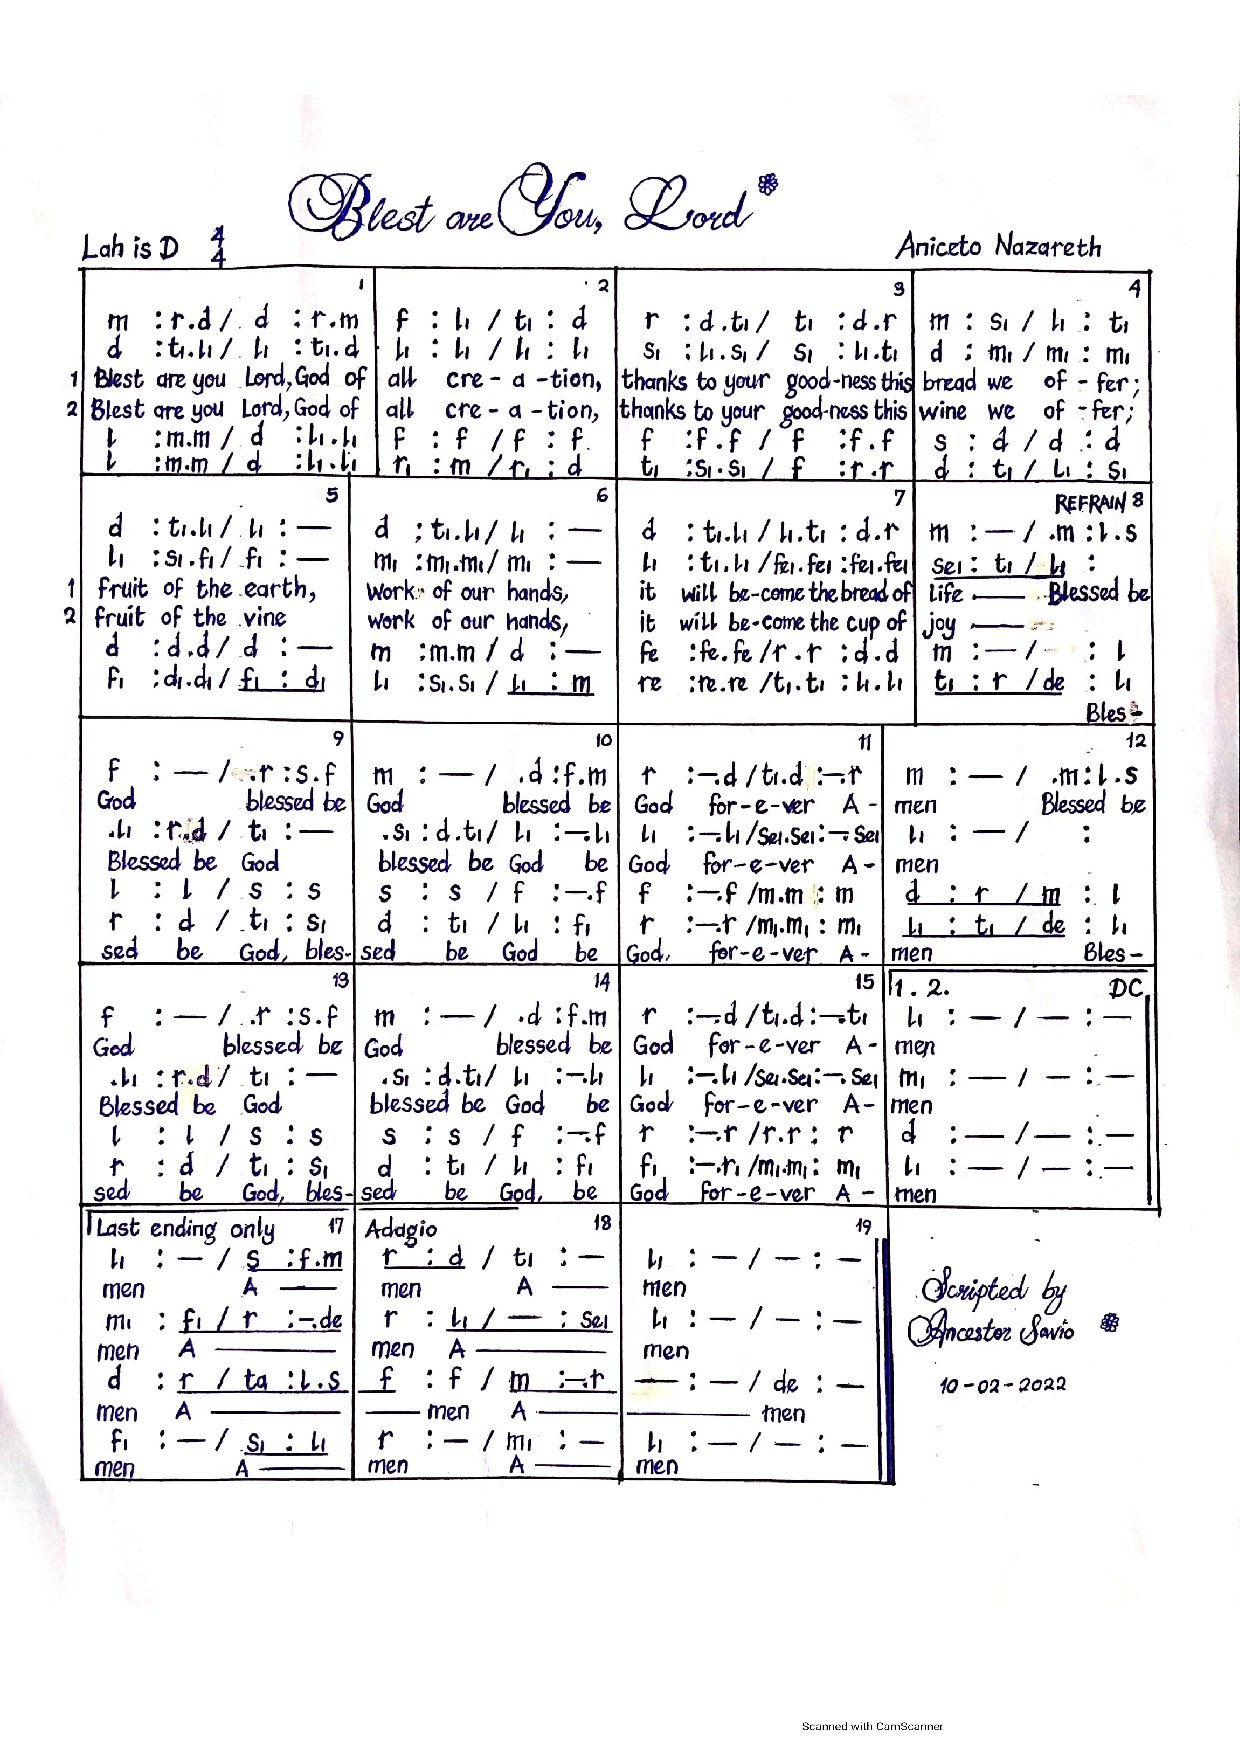 Blest are You, Lord
Lah is D 4/4 Aniceto Nazareth
1 2 3 4
m : r.d / d : r.m | f : l₁ / t₁ : d | r : d.t₁ / t₁ : d.r | m : s₁ / l₁ : t₁
d : t₁.l₁ / l₁ : t₁.d | l₁ : l₁ / l₁ : l₁ | s₁ : l₁.s₁ / s₁ : l₁.t₁ | d : m₁ / m₁ : m₁
1 Blest are you Lord, God of | all cre - a - tion, | thanks to your good-ness this | bread we of - fer;
2 Blest are you Lord, God of | all cre - a - tion, | thanks to your good-ness this | wine we of - fer;
l : m.m / d : l₁.l₁ | f : f / f : f | f : f.f / f : f.f | s : d / d : d
l : m.m / d : l₁.l₁ | r₁ : m / r₁ : d | t₁ : s₁.s₁ / f : r.r | d : t₁ / l₁ : s₁
5 6 7 REFRAIN 8
d : t₁.l₁ / l₁ : — | d : t₁.l₁ / l₁ : — | d : t₁.l₁ / l₁.t₁ : d.r | m : — / .m : l.s
l₁ : s₁.f₁ / f₁ : — | m₁ : m₁.m₁ / m₁ : — | l₁ : t₁.l₁ / fe₁.fe₁ : fe₁.fe₁ | se₁ : t₁ / l₁ :
1 fruit of the earth, | Work of our hands, | it will be-come the bread of | life — Blessed be
2 fruit of the vine | work of our hands, | it will be-come the cup of | joy —
d : d.d / d : — | m : m.m / d : — | fe : fe.fe / r.r : d.d | m : — / - : l
f₁ : d₁.d₁ / f₁ : d₁ | l₁ : s₁.s₁ / l₁ : m | re : re.re / t₁.t₁ : l₁.l₁ | t₁ : r / de : l₁
Bles -
9 10 11 12
f : — / .r : s.f | m : — / .d : f.m | r : —.d / t₁.d : —.r | m : — / .m : l.s
God blessed be | God blessed be | God for-e-ver A - | men Blessed be
.l₁ : r.d / t₁ : — | .s₁ : d.t₁ / l₁ : —.l₁ | l₁ : —.l₁ / se₁.se₁ : —.se₁ | l₁ : — / :
Blessed be God | blessed be God be | God for-e-ver A - | men
l : l / s : s | s : s / f : —.f | f : —.f / m.m : m | d : r / m : l
r : d / t₁ : s₁ | d : t₁ / l₁ : f₁ | r : —.r / m₁.m₁ : m₁ | l₁ : t₁ / de : l₁
sed be God, bles- | sed be God be | God, for-e-ver A - | men Bles -
13 14 15 1. 2. DC
f : — / .r : s.f | m : — / .d : f.m | r : —.d / t₁.d : —.t₁ | l₁ : — / — : —
God blessed be | God blessed be | God for-e-ver A - | men
.l₁ : r.d / t₁ : — | .s₁ : d.t₁ / l₁ : —.l₁ | l₁ : —.l₁ / se₁.se₁ : —.se₁ | m₁ : — / — : —
Blessed be God | blessed be God be | God for-e-ver A- | men
l : l / s : s | s : s / f : —.f | r : —.r / r.r : r | d : — / — : —
r : d / t₁ : s₁ | d : t₁ / l₁ : f₁ | f₁ : —.r₁ / m₁.m₁ : m₁ | l₁ : — / — : —
sed be God, bles- | sed be God, be | God for-e-ver A - | men
Last ending only 17 Adagio 18 19
l₁ : — / s : f.m | r : d / t₁ : — | l₁ : — / — : —
men A — | men A — | men
m₁ : f₁ / r : —.de | r : l₁ / — : se₁ | l₁ : — / — : —
men A — | men A — | men
d : r / ta : l.s | f : f / m : —.r | — : — / de : —
men A — | — men A — | — men
f₁ : — / s₁ : l₁ | r : — / m₁ : — | l₁ : — / — : —
men A — | men A — | men
Scripted by
Ancestor Savio
10-02-2022
Scanned with CamScanner